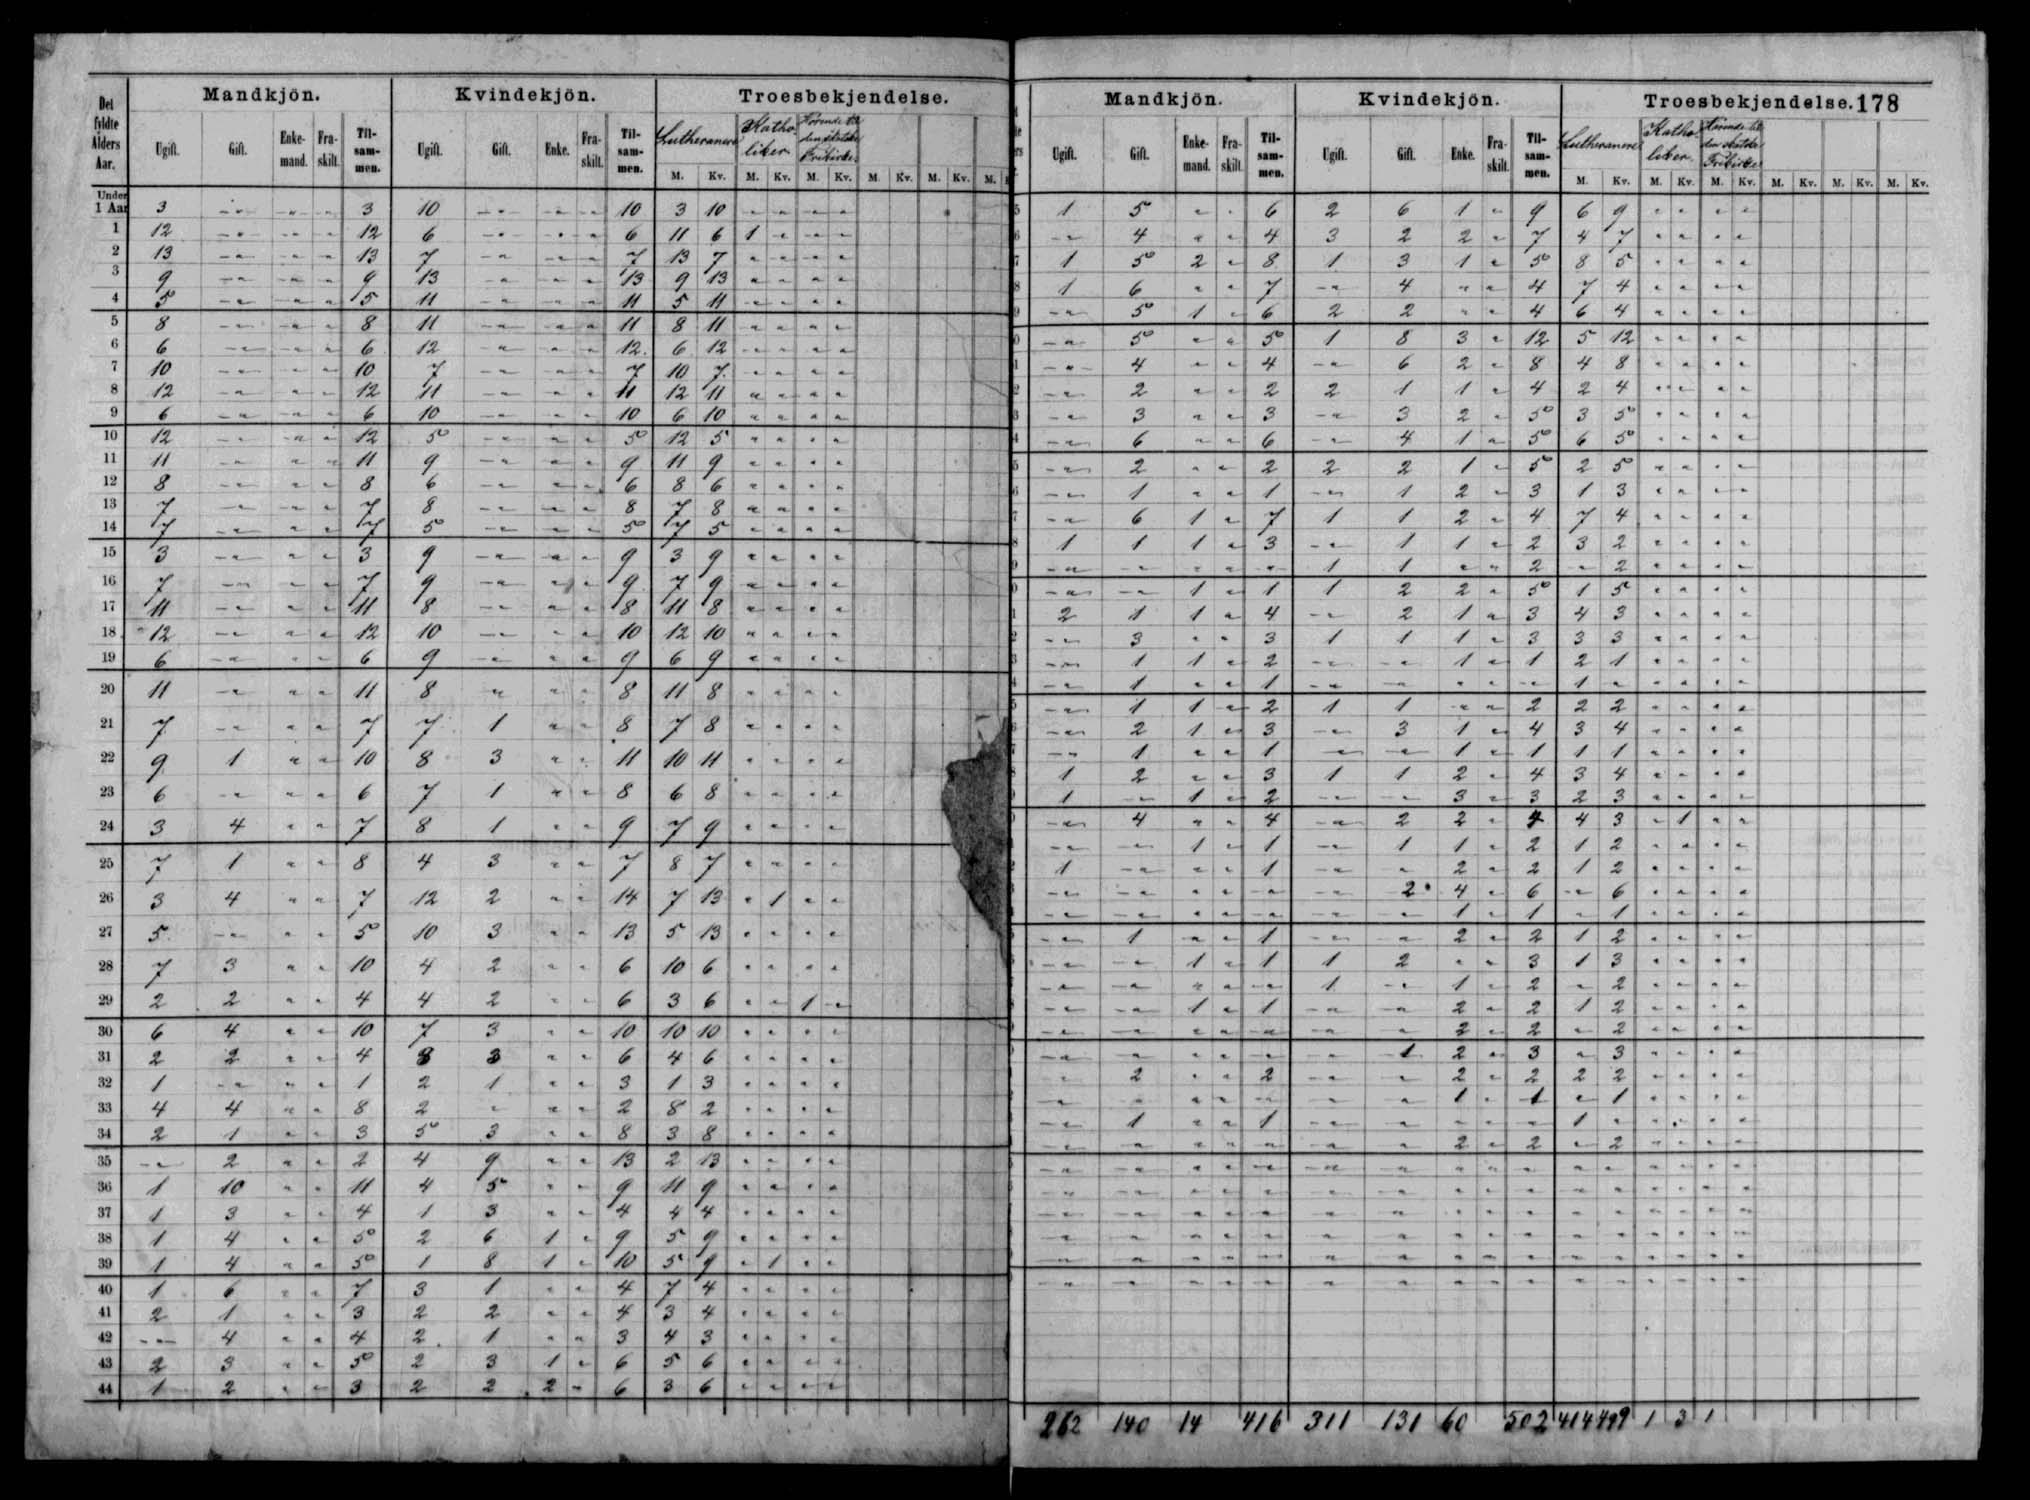 Mandkjön. Kvindekjön. Troesbekjendelse.
Det fyldte Alders Aar. Ugift. Gift. Enke-mand. Fra-skilt. Til-sam-men. Ugift. Gift. Enke. Fra-skilt. Til-sam-men. Lutheranere Katho-liker Hörende til den skotske Frikirke
M. Kv. M. Kv. M. Kv. M. Kv. M. Kv. M.
Under 1 Aar 3 " " " 3 10 " " " 10 3 10 " " " "
1 12 " " " 12 6 " " " 6 11 6 1 " " "
2 13 " " " 13 7 " " " 7 13 7 " " " "
3 9 " " " 9 13 " " " 13 9 13 " " " "
4 5 " " " 5 11 " " " 11 5 11 " " " "
5 8 " " " 8 11 " " " 11 8 11 " " " "
6 6 " " " 6 12 " " " 12 6 12 " " " "
7 10 " " " 10 7 " " " 7 10 7 " " " "
8 12 " " " 12 11 " " " 11 12 11 " " " "
9 6 " " " 6 10 " " " 10 6 10 " " " "
10 12 " " " 12 5 " " " 5 12 5 " " " "
11 11 " " " 11 9 " " " 9 11 9 " " " "
12 8 " " " 8 6 " " " 6 8 6 " " " "
13 7 " " " 7 8 " " " 8 7 8 " " " "
14 7 " " " 7 5 " " " 5 7 5 " " " "
15 3 " " " 3 9 " " " 9 3 9 " " " "
16 7 " " " 7 9 " " " 9 7 9 " " " "
17 11 " " " 11 8 " " " 8 11 8 " " " "
18 12 " " " 12 10 " " " 10 12 10 " " " "
19 6 " " " 6 9 " " " 9 6 9 " " " "
20 11 " " " 11 8 " " " 8 11 8 " " " "
21 7 " " " 7 7 1 " " 8 7 8 " " " "
22 9 1 " " 10 8 3 " " 11 10 11 " " " "
23 6 " " " 6 7 1 " " 8 6 8 " " " "
24 3 4 " " 7 8 1 " " 9 7 9 " " " "
25 7 1 " " 8 4 3 " " 7 8 7 " " " "
26 3 4 " " 7 12 2 " " 14 7 13 " 1 " "
27 5 " " " 5 10 3 " " 13 5 13 " " " "
28 7 3 " " 10 4 2 " " 6 10 6 " " " "
29 2 2 " " 4 4 2 " " 6 3 6 " " 1 "
30 6 4 " " 10 7 3 " " 10 10 10 " " " "
31 2 2 " " 4 3 3 " " 6 4 6 " " " "
32 1 " " " 1 2 1 " " 3 1 3 " " " "
33 4 4 " " 8 2 " " " 2 8 2 " " " "
34 2 1 " " 3 5 3 " " 8 3 8 " " " "
35 " 2 " " 2 4 9 " " 13 2 13 " " " "
36 1 10 " " 11 4 5 " " 9 11 9 " " " "
37 1 3 " " 4 1 3 " " 4 4 4 " " " "
38 1 4 " " 5 2 6 1 " 9 5 9 " " " "
39 1 4 " " 5 1 8 1 " 10 5 9 " 1 " "
40 1 6 " " 7 3 1 " " 4 7 4 " " " "
41 2 1 " " 3 2 2 " " 4 3 4 " " " "
42 " 4 " " 4 2 1 " " 3 4 3 " " " "
43 2 3 " " 5 2 3 1 " 6 5 6 " " " "
44 1 2 " " 3 2 2 2 " 6 3 6 " " " "
Mandkjön. Kvindekjön. Troesbekjendelse. 178
Ugift. Gift. Enke-mand. Fra-skilt. Til-sam-men. Ugift. Gift. Enke. Fra-skilt. Til-sam-men. Lutheranere Katho-liker. Hörende til den skotske Frikirke
M. Kv. M. Kv. M. Kv. M. Kv. M. Kv. M. Kv.
5 1 5 " " 6 2 6 1 " 9 6 9 " " " "
6 " 4 " " 4 3 2 2 " 7 4 7 " " " "
7 1 5 2 " 8 1 3 1 " 5 8 5 " " " "
8 1 6 " " 7 " 4 " " 4 7 4 " " " "
9 " 5 1 " 6 2 2 " " 4 6 4 " " " "
0 " 5 " " 5 1 8 3 " 12 5 12 " " " "
1 " 4 " " 4 " 6 2 " 8 4 8 " " " "
2 " 2 " " 2 2 1 1 " 4 2 4 " " " "
3 " 3 " " 3 " 3 2 " 5 3 5 " " " "
4 " 6 " " 6 " 4 1 " 5 6 5 " " " "
5 " 2 " " 2 2 2 1 " 5 2 5 " " " "
6 " 1 " " 1 " 1 2 " 3 1 3 " " " "
7 " 6 1 " 7 1 1 2 " 4 7 4 " " " "
8 1 1 1 " 3 " 1 1 " 2 3 2 " " " "
9 " " " " " 1 1 " " 2 " 2 " " " "
0 " " 1 " 1 1 2 2 " 5 1 5 " " " "
1 2 1 1 " 4 " 2 1 " 3 4 3 " " " "
2 " 3 " " 3 1 1 1 " 3 3 3 " " " "
3 " 1 1 " 2 " " 1 " 1 2 1 " " " "
4 " 1 " " 1 " " " " " 1 " " " " "
5 " 1 1 " 2 1 1 " " 2 2 2 " " " "
6 " 2 1 " 3 " 3 1 " 4 3 4 " " " "
7 " 1 " " 1 " " 1 " 1 1 1 " " " "
8 1 2 " " 3 1 1 2 " 4 3 4 " " " "
9 1 " 1 " 2 " " 3 " 3 2 3 " " " "
0 " 4 " " 4 " 2 2 " 4 4 3 " 1 " "
" " 1 " 1 " 1 1 " 2 1 2 " " " "
2 1 " " " 1 " " 2 " 2 1 2 " " " "
3 " " " " " " 2 4 " 6 " 6 " " " "
" " " " " " " 1 " 1 " 1 " " " "
" 1 " " 1 " " 2 " 2 1 2 " " " "
" " 1 " 1 1 2 " " 3 1 3 " " " "
" " " " " 1 " 1 " 2 " 2 " " " "
" " 1 " 1 " " 2 " 2 1 2 " " " "
" " " " " " " 2 " 2 " 2 " " " "
" " " " " " 1 2 " 3 " 3 " " " "
" 2 " " 2 " " 2 " 2 2 2 " " " "
" " " " " " " 1 " 1 " 1 " " " "
" 1 " " 1 " " " " " 1 " " " " "
" " " " " " " 2 " 2 " 2 " " " "
" " " " " " " " " " " " " " " "
" " " " " " " " " " " " " " " "
" " " " " " " " " " " " " " " "
" " " " " " " " " " " " " " " "
" " " " " " " " " " " " " " " "
" " " " " " " " " " " " " " " "
262 140 14 416 311 131 60 502 414 499 1 3 1